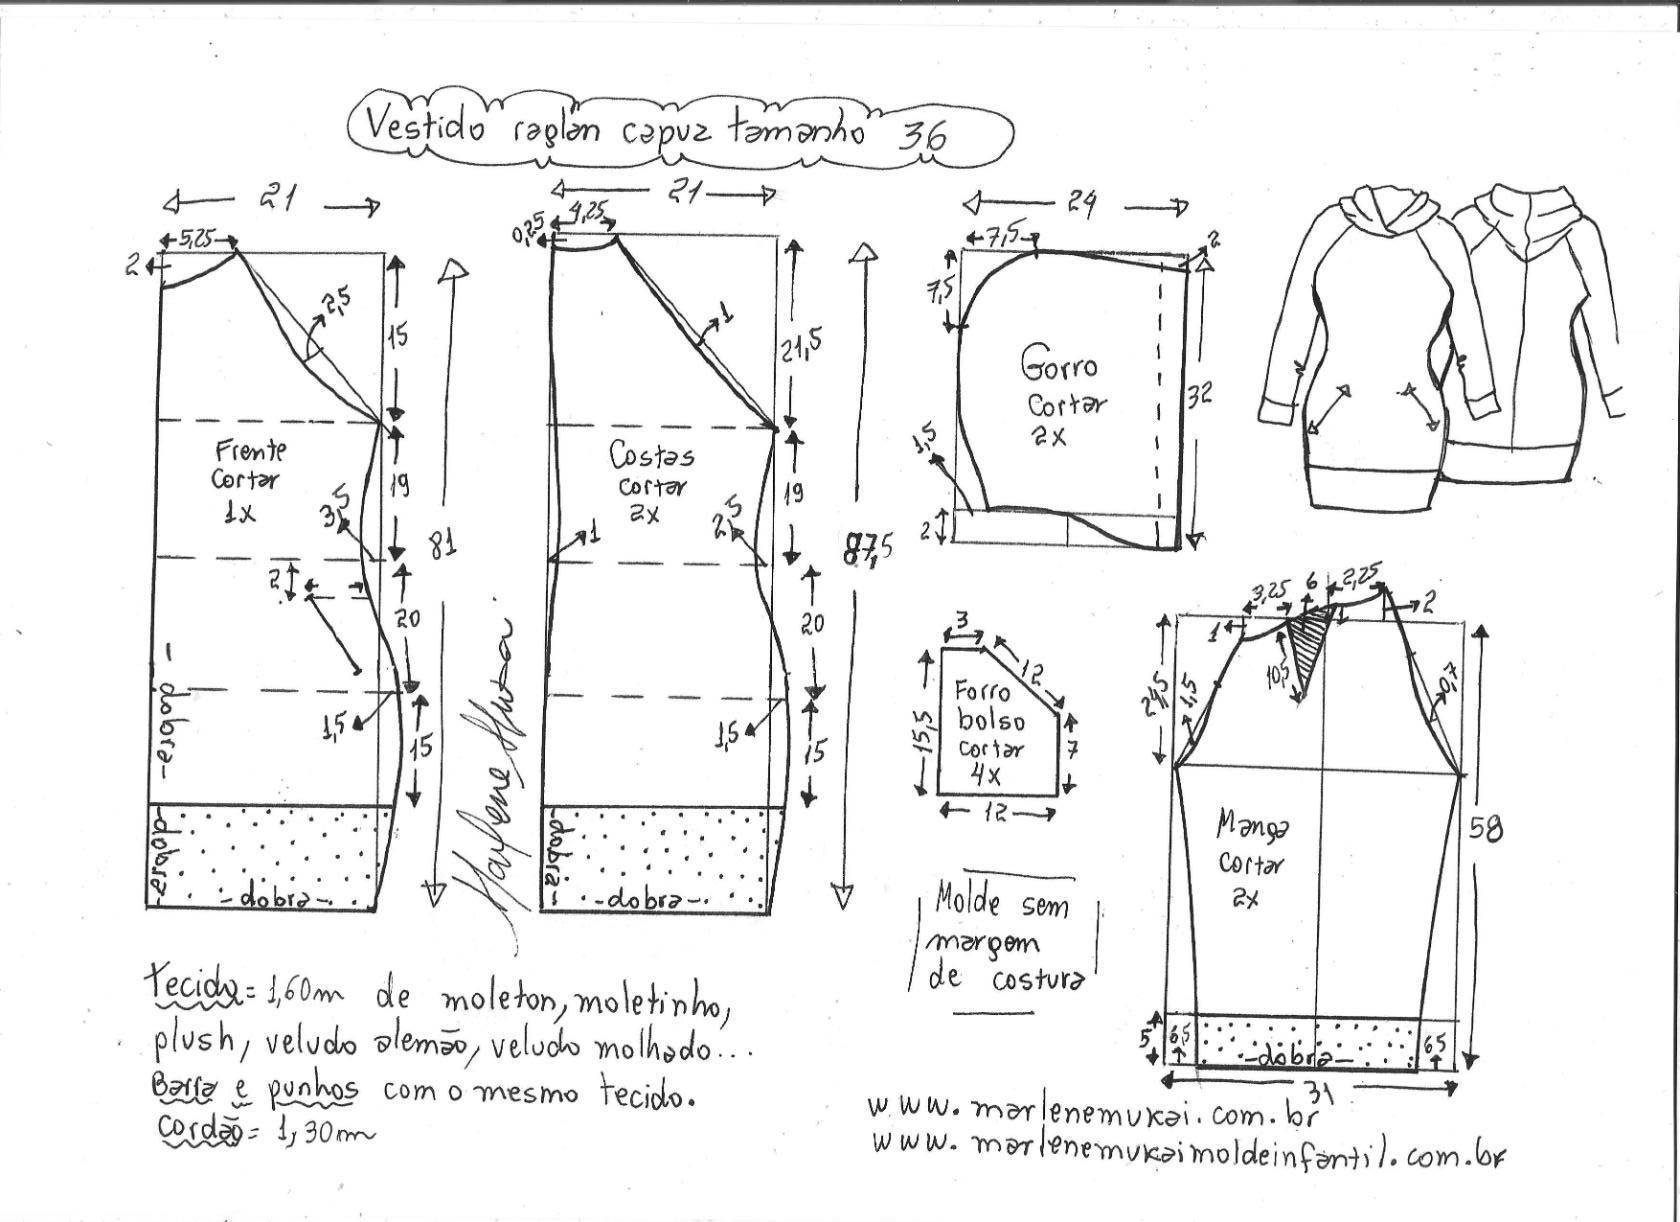 Vestido raglan capuz tamanho 36
21
5,25
2
2,5
15
Frente
cortar
1x
19
3,5
81
2
20
1,5
15
-dobra-
-dobra-
-dobra-
21
0,25
4,25
1
21,5
Costas
cortar
2x
19
1
2,5
87,5
20
1,5
15
-dobra-
-dobra-
24
7,5
2
7,5
Gorro
cortar
2x
32
1,5
2
3
12
15,5
Forro
bolso
cortar
4x
7
12
3,25
6
2,25
2
1
1
10,5
24,5
1,5
0,7
Manga
cortar
2x
58
5
6,5
-dobra-
6,5
31
Molde sem
margem
de costura
Tecido= 1,60m de moleton, moletinho,
plush, veludo alemão, veludo molhado...
Barra e punhos com o mesmo tecido.
Cordão= 1,30m
www.marlenemukai.com.br
www.marlenemukaimoldeinfantil.com.br